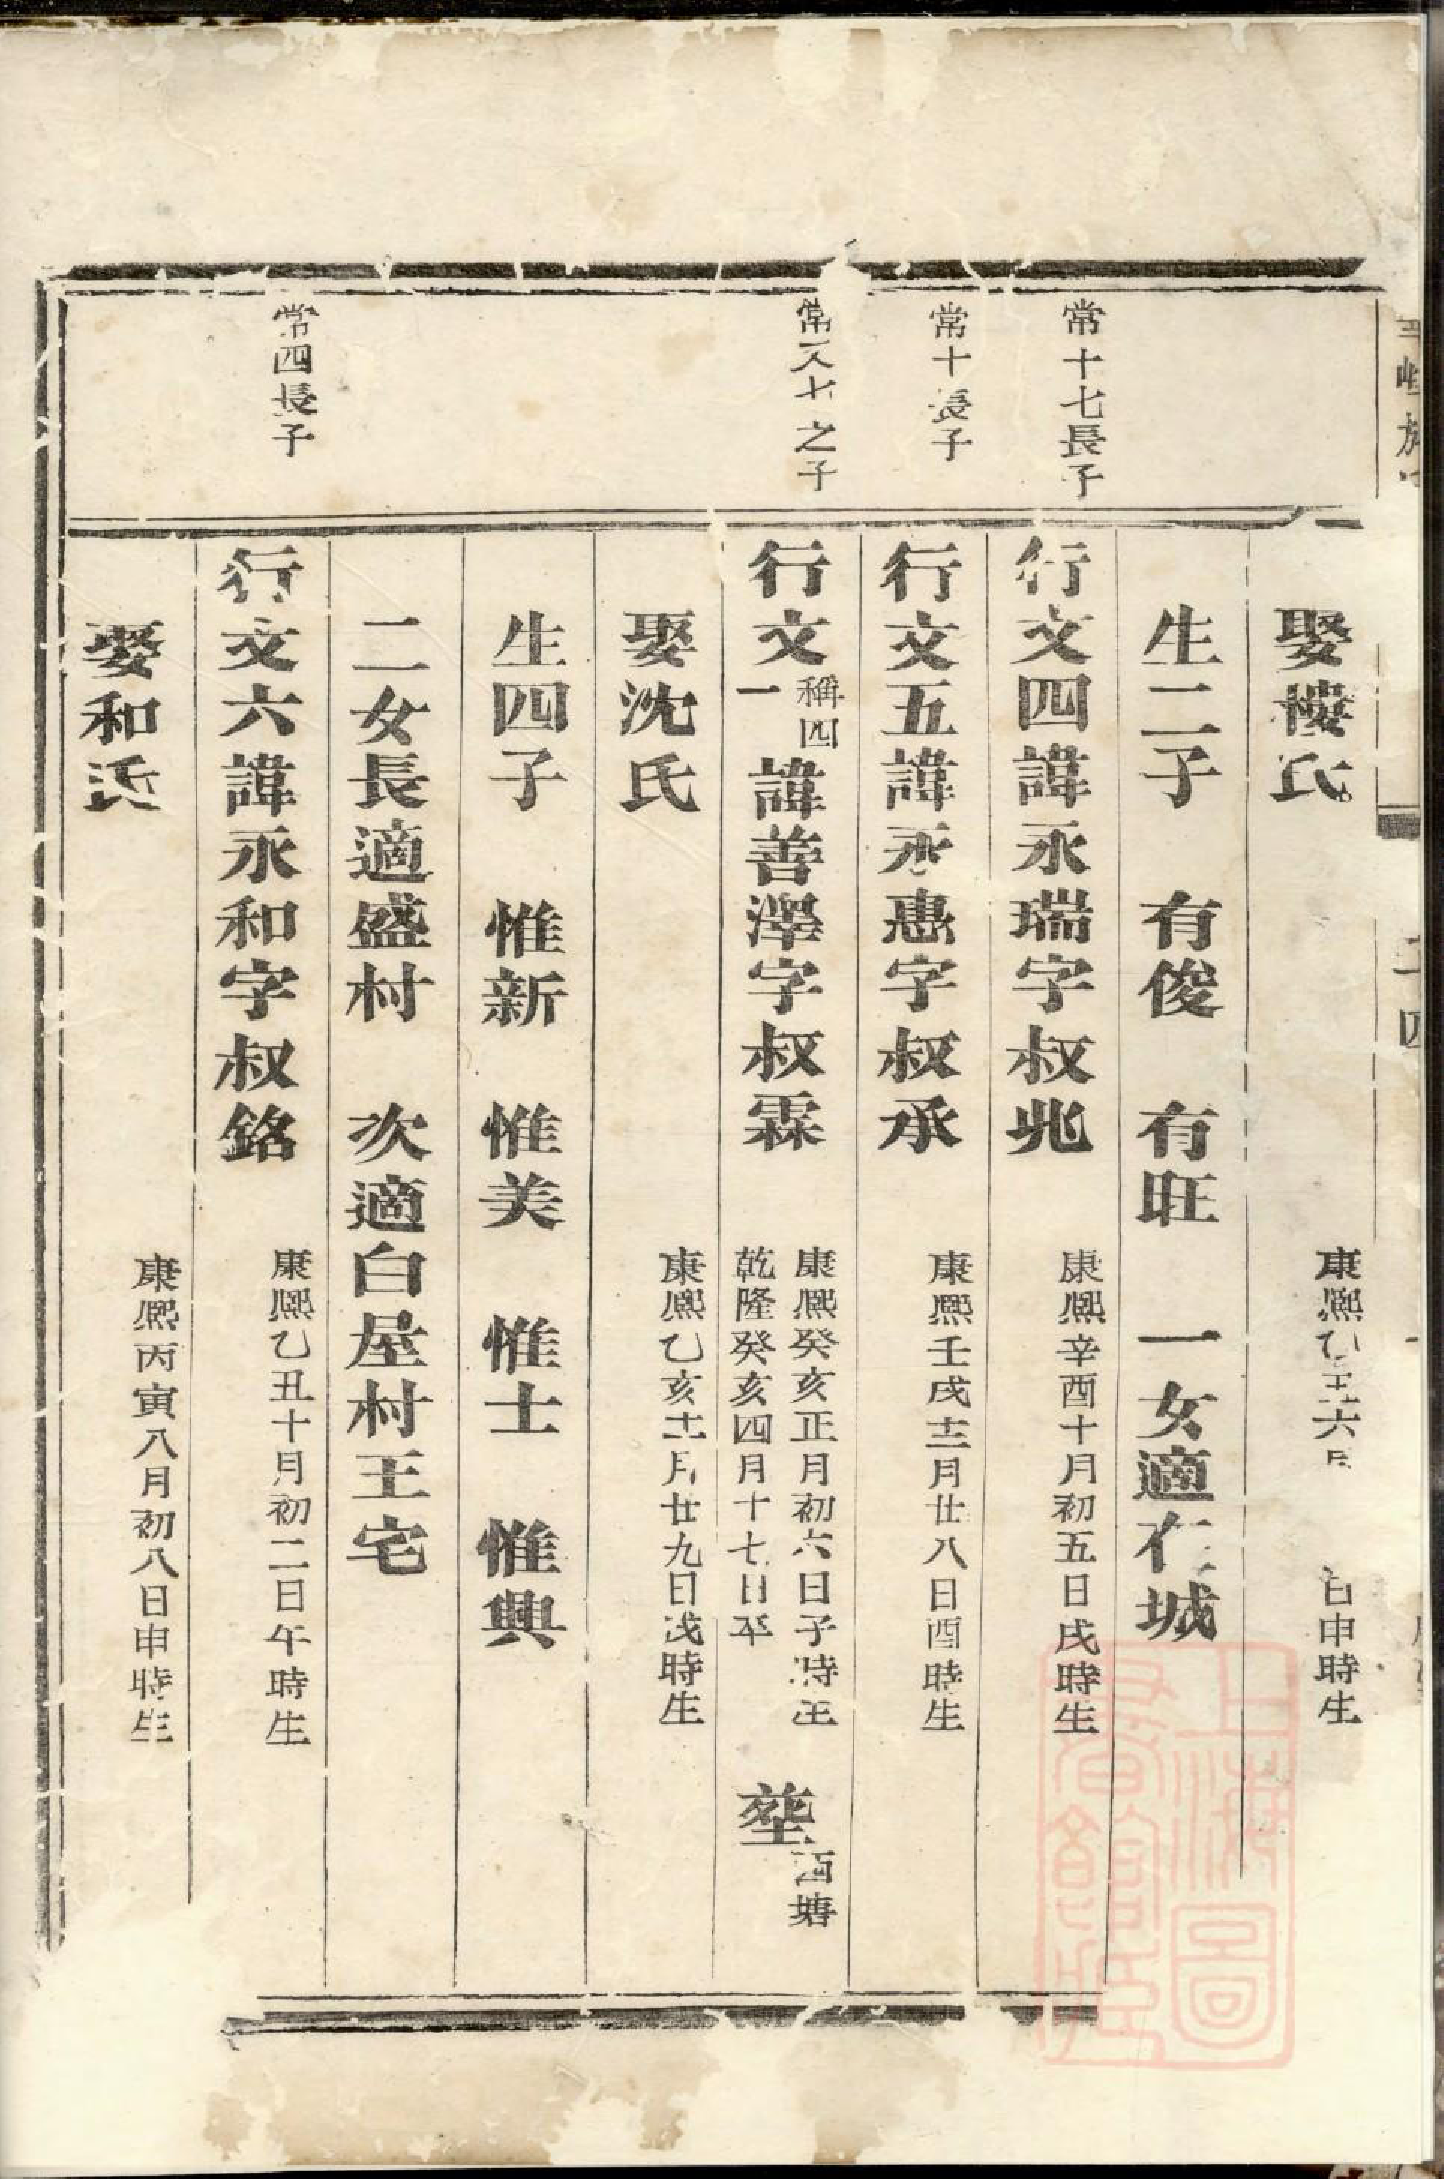 娶樓氏 康熙乙 六月 日申時生
生二子 有俊 有旺 一女適在城
常十七長子
行文四諱永瑞字叔兆 康熙辛酉十月初五日戌時生
常十長子
行文五諱永惠字叔承 康熙壬戌十二月廿八日酉時生
常人七之子
行文一 稱四 諱善澤字叔霖 康熙癸亥正月初六日子時生 乾隆癸亥四月十七日卒 塟西塘
娶沈氏 康熙乙亥十一月廿九日戌時生
生四子 惟新 惟美 惟士 惟興
二女長適盛村 次適白屋村王宅
常四長子
行文六諱永和字叔銘 康熙乙丑十月初二日午時生
娶和氏 康熙丙寅八月初八日申時生
上海圖書館藏